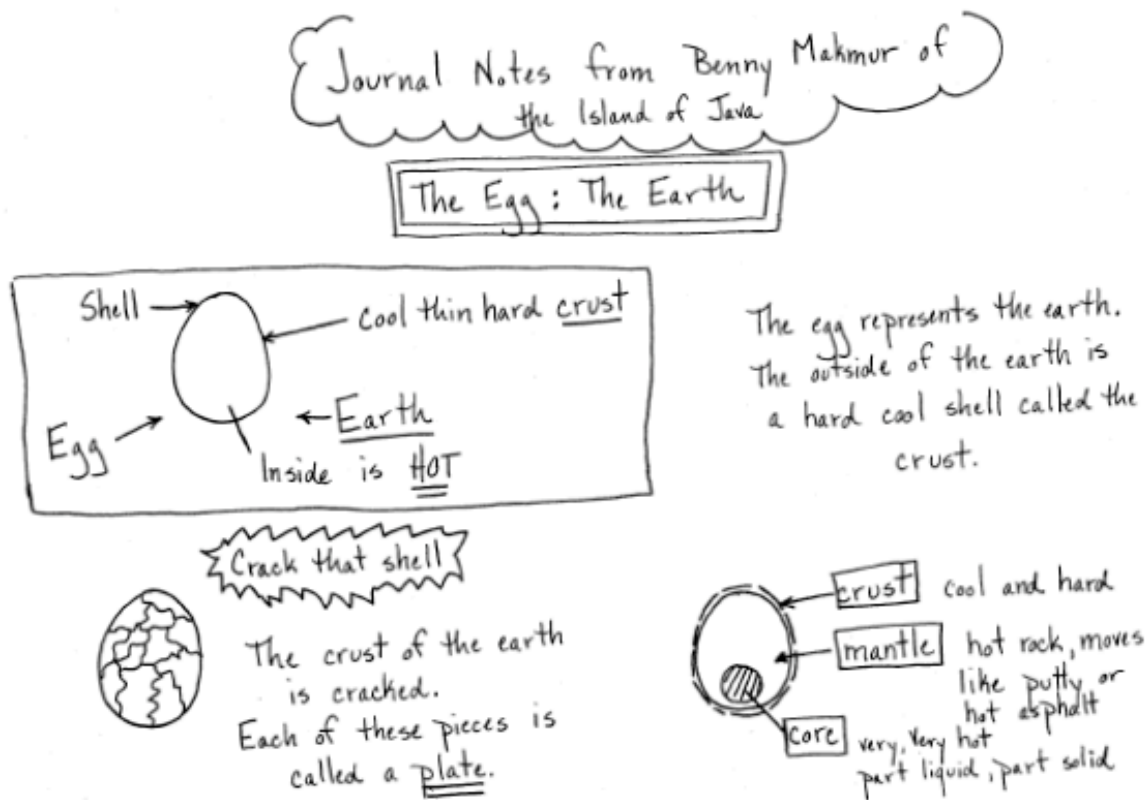 Journal Notes from Benny Makmur of
the Island of Java
The Egg : The Earth
Shell
cool thin hard crust
Egg
Earth
Inside is HOT
The egg represents the earth.
The outside of the earth is
a hard cool shell called the
crust.
Crack that shell
The crust of the earth
is cracked.
Each of these pieces is
called a plate.
crust cool and hard
mantle hot rock, moves
like putty or
hot asphalt
core very, very hot
part liquid, part solid